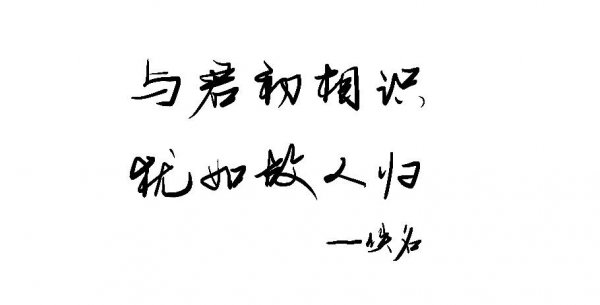 与君初相识,
犹如故人归
—佚名